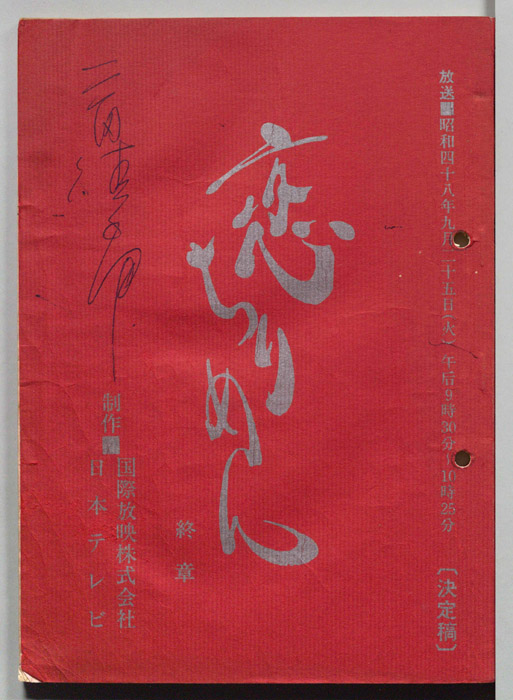 放送 昭和四十八年九月二十五日(火)午后9時30分―10時25分
〔決定稿〕
恋ちりめん
終章
制作
国際放映株式会社
日本テレビ